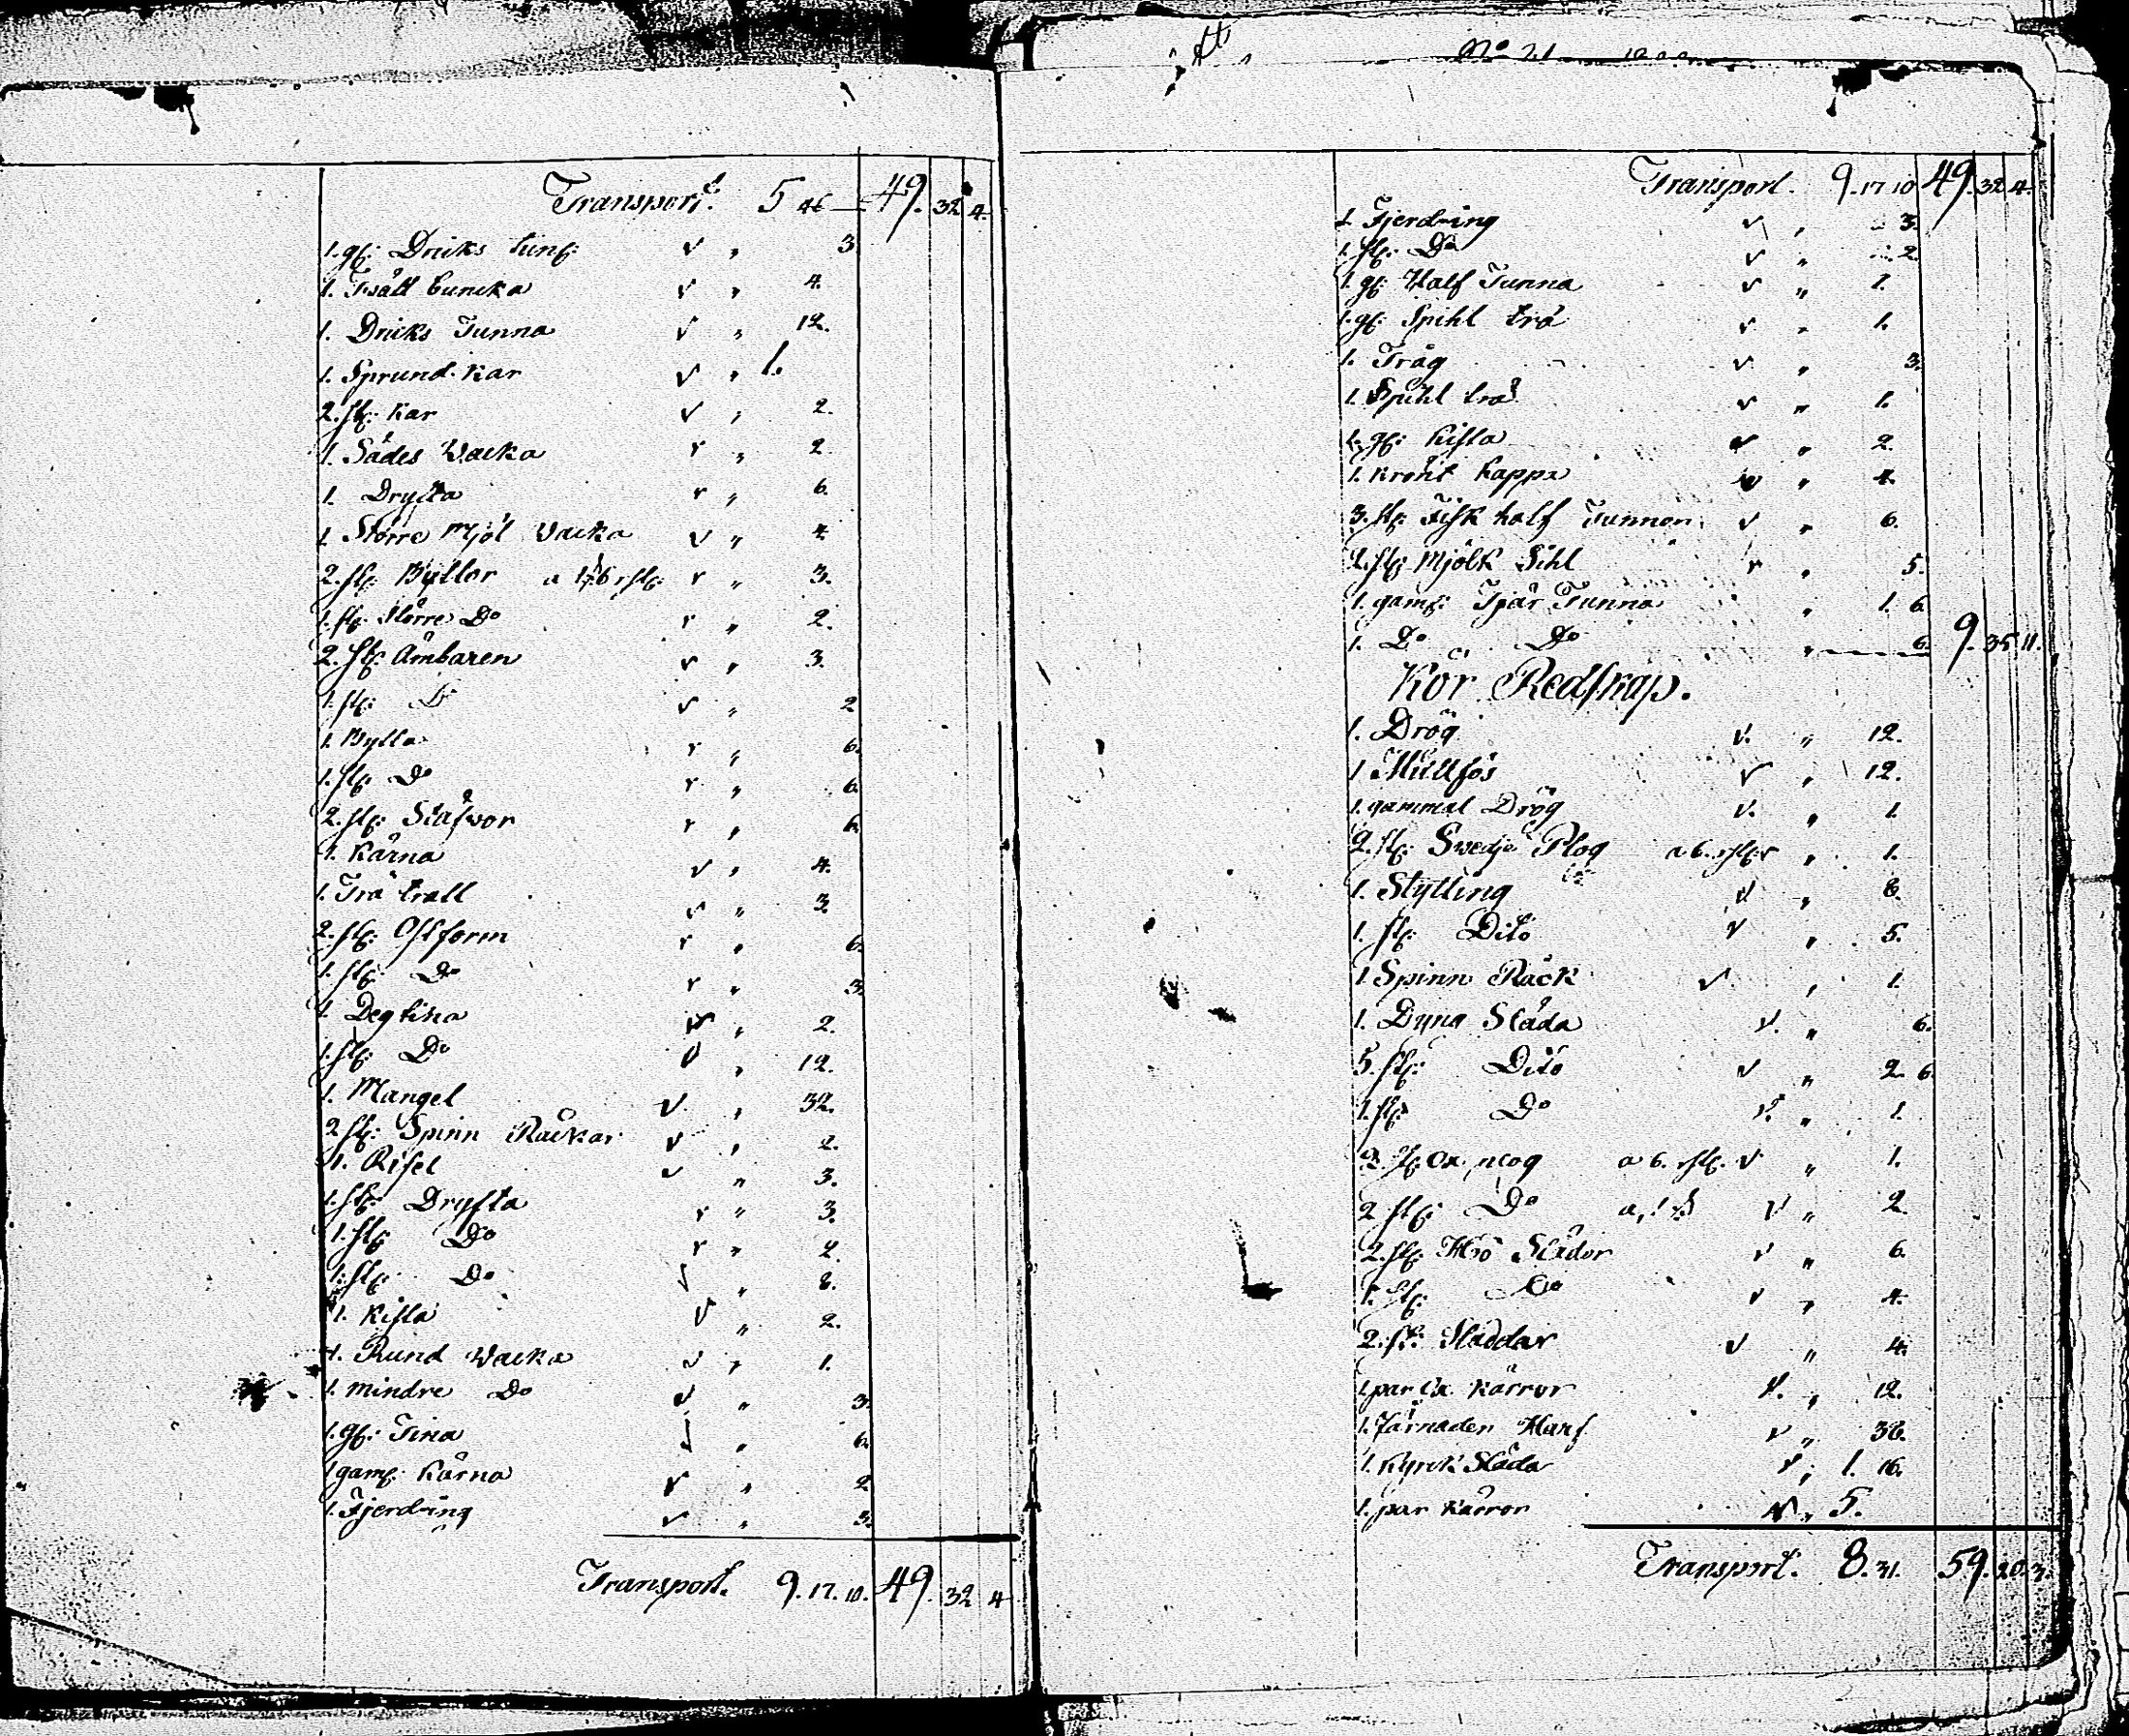 Transport. 5 46 — 49. 32 4.
1. gl: Dricks tun: v " 3
1. Twätt buncka v " 4.
1. Dricks Tunna v " 12.
1. Sprund. kar v " 1.
2. st: kar v " 2.
1. Sädes Wacka v " 2.
1. Dryfta v " 6.
1. Större Mjöl Wacka v " 4
2. st: Byttor a 1/6 rst: v " 3.
1. st: större Do v " 2.
2. st: Ämbaren v " 3.
1. st: Do v " 2
1. Bytta v " 6.
1. st: Do v " 6.
2. st: Stäfvor v " 6.
1. Kärna v " 4.
1. Trä tratt v " 3.
2. st: Ostform v " 6.
1. st: Do v " 3.
1. Deg tina v " 2.
1. st: Do v " 12.
1. Mangel v " 32.
2 st: Spinn Räckar v " 2.
1. Risel v " 3.
1. st: Dryfta v " 3.
1. st: Do v " 2.
1. st: Do v " 8.
1. Kista v " 2.
1. Rund Wacka v " 1.
1. mindre Do v " 3.
1. gl: Tina v " 6.
1 gaml: Kärna v " 2
1. Fjerding v " 3.
Transport. 9. 17. 10. 49. 32 4
No 21
Transport. 9. 17 10 49. 32 4.
1 Fjerding v " 3.
1. st: Do v " 2.
1. gl: Half Tunna v " 1.
1. gl: Spihl trä v " 1.
1. Tråg v " 3.
1. Spihl trä v " 1.
1. gl: Kista v " 2.
1. krönt kappe v " 4.
3. st: Fisk half Tunnor v " 6.
2. st: Mjölk Sihl v " 5.
1. gaml: Tjär Tunna " 1. 6.
1. Do Do " 6. 9. 35 11.
Kör Redskap.
1. Drög v. " 12.
1 Mullfös v " 12.
1. gammal Drög v. " 1.
2. st: Swedje Plog a 6. rst: v " 1.
1. Stytting v " 8.
1. st: Dito v " 5.
1 Spinn Räck v " 1.
1. Dyng Släda v. " 6.
5. st: Dito v " 2. 6.
1. st: Do v. " 1.
2. st: Ox plog a 6. rst: v " 1.
2 st: Do v " 2.
2. st: Hö Slädor v " 6.
1. st: Do v " 4.
2. st: Sladdar v " 4.
1. par Ox. kärror v. " 12.
1. Järnaden Harf v " 36.
1. Kyrck Släda v " 1. 16.
1. par Kärror v " 5.
Transport. 8. 31. 59. 20. 3.